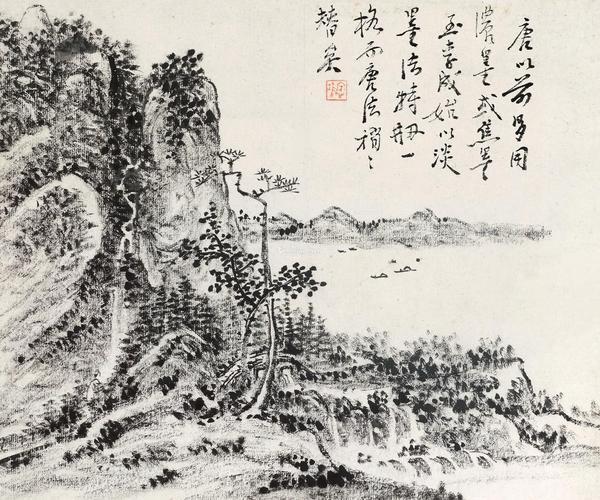 唐以前多用
濃墨或焦墨
至李成始以淡
墨法特刱一
格而唐法稍〻
替矣